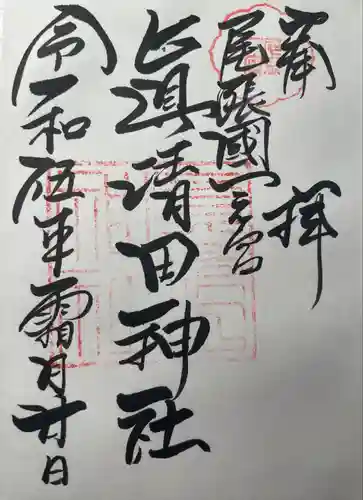 奉拝
尾張國一之宮
真清田神社
令和伍年霜月廿日